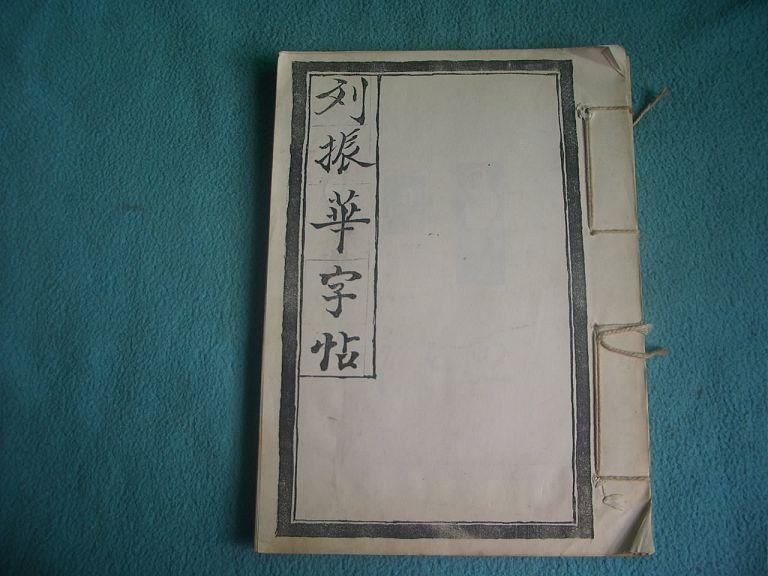 刘振華字帖